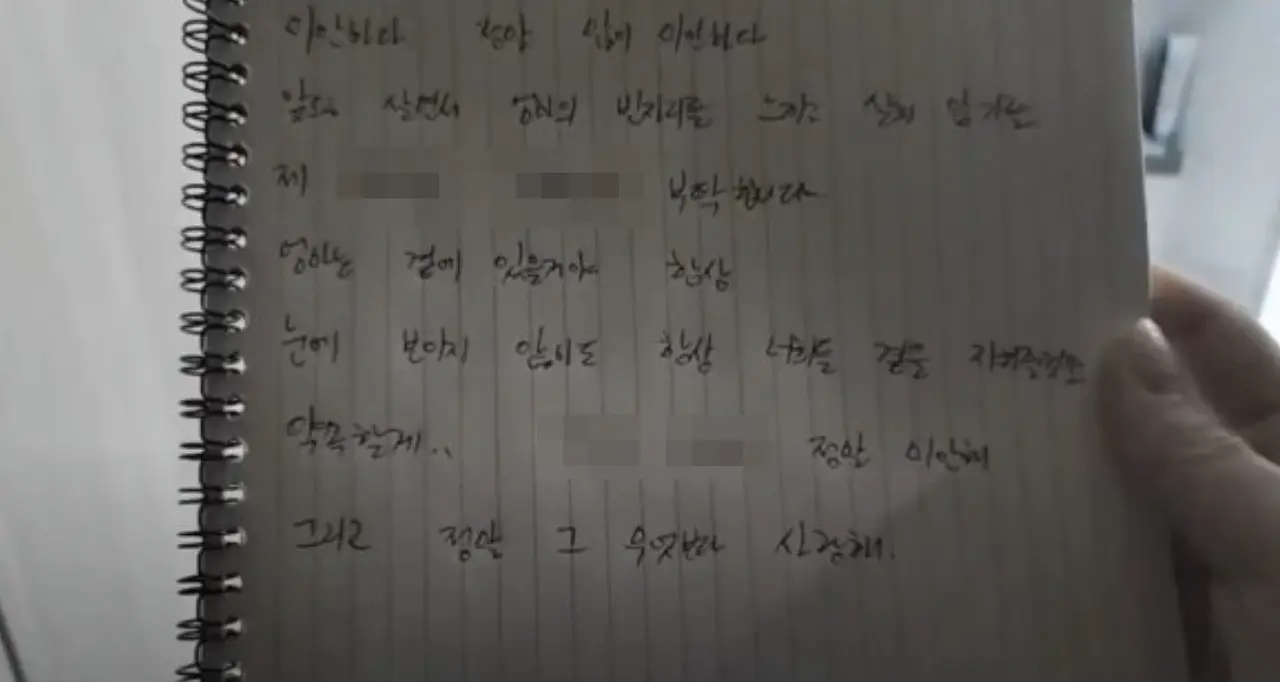 미안하다 정말 많이 미안하다
앞으로 살면서 엄마의 빈자리를 느끼고 살지 않게끔
제 부탁합니다
엄마는 곁에 있을거야 항상
눈에 보이지 않아도 항상 너희들 곁을 지켜줄것을
약속할게..  정말 미안해
그리고 정말 그 무엇보다 사랑해.